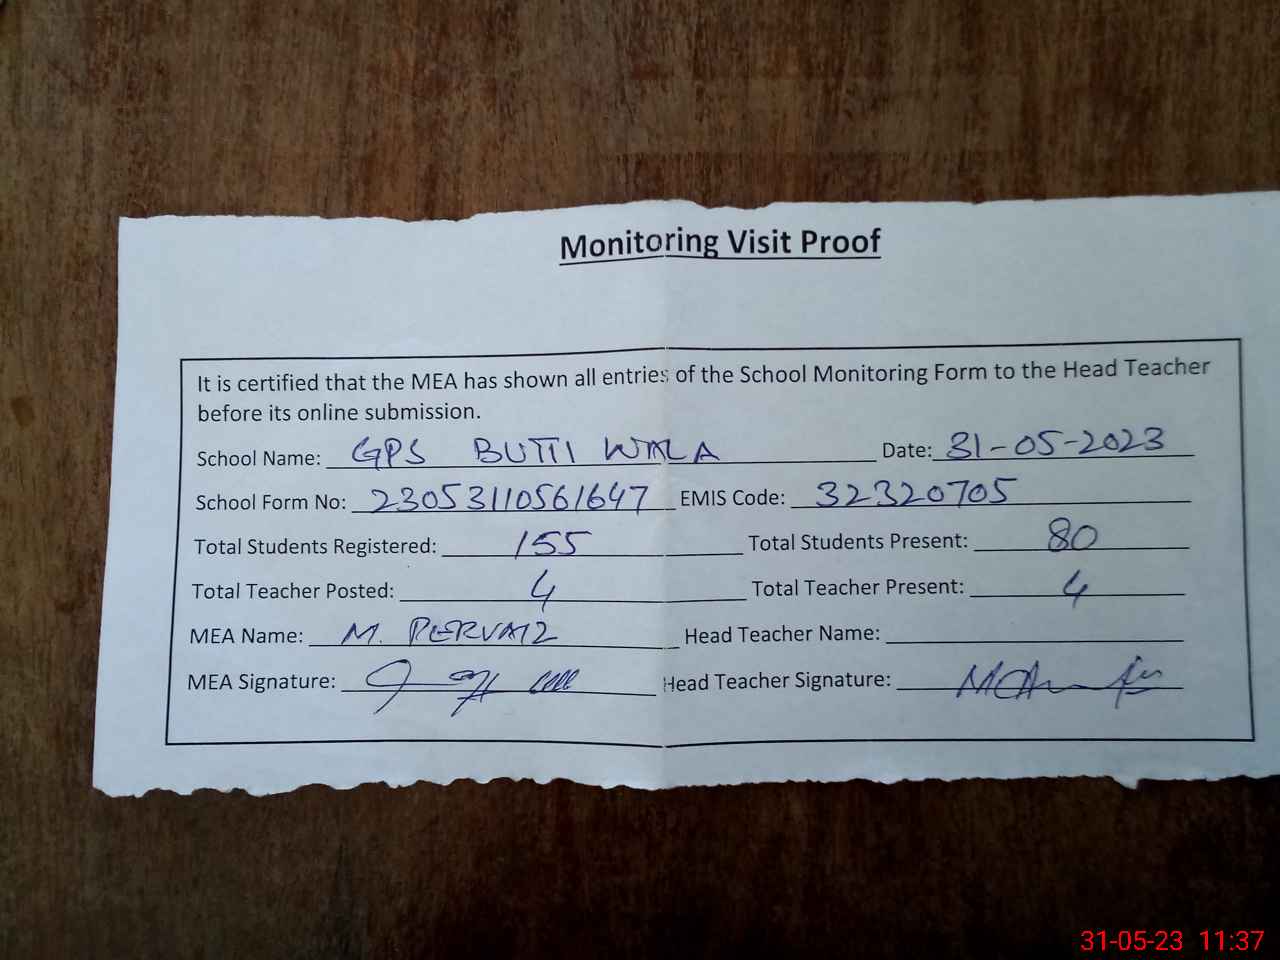 Monitoring Visit Proof
It is certified that the MEA has shown all entries of the School Monitoring Form to the Head Teacher
before its online submission.
School Name: GPS BUTTI WALA Date: 31-05-2023
School Form No: 23053110561647 EMIS Code: 32320705
Total Students Registered: 155 Total Students Present: 80
Total Teacher Posted: 4 Total Teacher Present: 4
MEA Name: M. PERVAIZ Head Teacher Name:
MEA Signature: Head Teacher Signature:
31-05-23 11:37